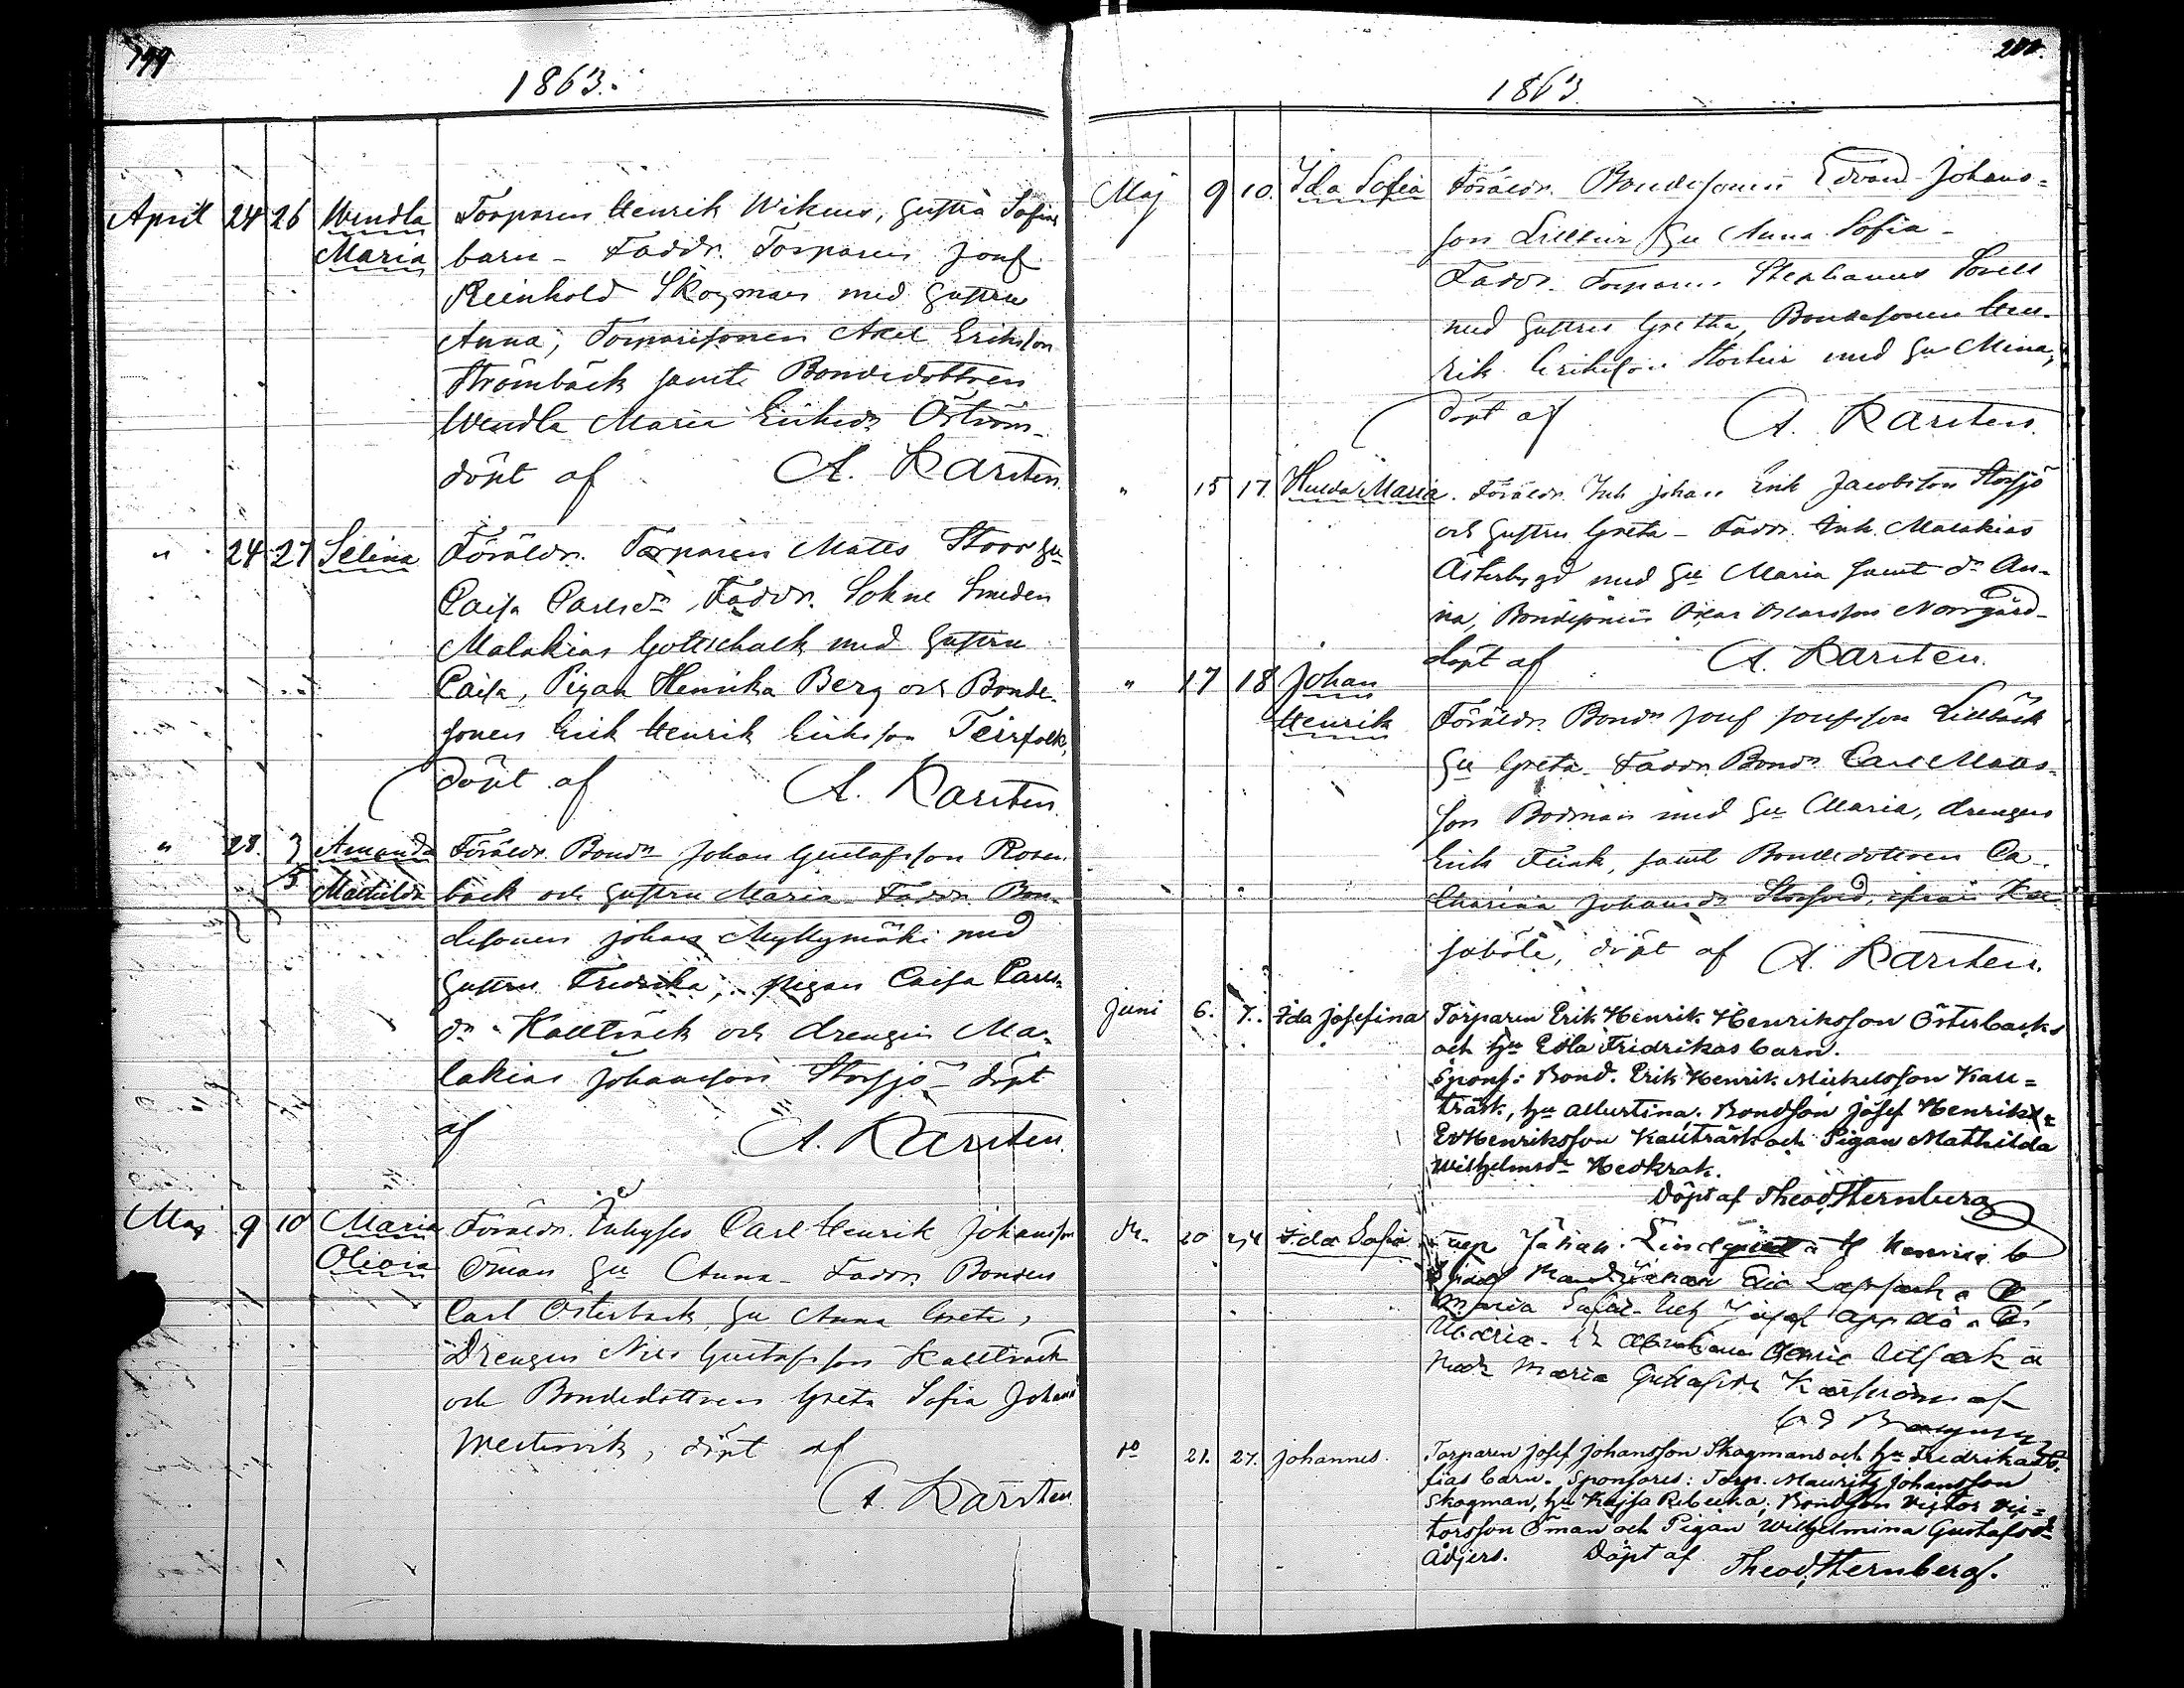 199
1863.
April 24 26 Wendla Torparen Henrik Wikius, hustru Sofias
Maria barn - Faddr. Torparen Josef
Reinhold Skogman med hustru
Anna, Torparesonen Axel Erikson
Strömbäck samt Bondedottren
Wendla Maria Eriksdr Öström -
döpt af A. Karsten.
" 24 27 Selina Föräldr. Torparen Matts Stoor hu
Caisa Carlsdr, Faddr. Sokne Smeden
Malakias Gottschalk med hustru
Caisa, Pigan Henrika Berg och Bonde-
sonen Erik Henrik Eriksson Teirfolk,
döpt af A. Karsten.
" 28. 3/5 Amanda Föräldr. Bondn Johan Gustafsson Rosen-
Mathilda back och hustru Maria - Faddr. Bon-
desonen Johan Myllymäki med
hustru Fredrika, pigan Caisa Carls-
dr Kallträsk och drengen Ma-
lakias Johansson Storsjö - döpt
af A. Karsten.
Maj 9 10 Maria Föräldr. Inhyses Carl Henrik Johansson
Olivia Öman hu Anna - Faddr. Bonden
Carl Österback, hu Anna Greta,
Drengen Nils Gustafsson Kallträsk
och Bondedottren Greta Sofia Johans
Westervik, döpt af
A. Karsten.
200.
1863.
Maj 9 10. Ida Sofia Föräldr. Bondesonen Edvard Johans-
son hu Anna Sofia -
Faddr. Torparen Stephanus
med hustru Gretha, Bondesonen Hen-
rik Erikson med hu Mina,
döpt af A. Karsten.
" 15 17. Hulda Maria. Föräldr. Inh. Johan Erik Jacobsson Storsjö
och hustru Greta - Faddr. Inh. Malakias
Österbygd med hu Maria samt dr An-
na, Bondesonen Oskar Oskarsson Norrgård -
döpt af A. Karsten.
" 17 18 Johan
Henrik Föräldr. Bondn Josef Josefsson Lillbäck
hu Greta - Faddr. Bondn Carl Matts-
son Bodman med hu Maria, drengen
Erik Fink, samt Bondedottren Ca-
tharina Johansdr Storgård, ifrån Kas-
saböle, döpt af A. Karsten.
Juni 6. 7. Ida Josefina Torparen Erik Henrik Henriksson Österbacks
och hu Edla Fridrikas barn.
Spons: Bond. Erik Henrik Mickelsson Kall-
träsk, hu Albertina. Bondson Josef Henrik
Henriksson Kallträsk och Pigan Mathilda
Wilhelmsdr Hedkrok.
Döpt af Theod. Sternberg
20 24 Ida Sofia Johan Lindqvist
Maria
Maria
Maria Gustafsdr af
do 21. 27. Johannes. Torparen Josef Johansson Skogmans och hu Fredrika So-
fias barn. Sponsores: Torp. Mauritz Johansson
Skogman, hu Kajsa Rebecka, Bondson Victor Vic-
torsson Öman och Pigan Wilhelmina Gustafsdr
Ädjers. Döpt af Theod. Sternberg.